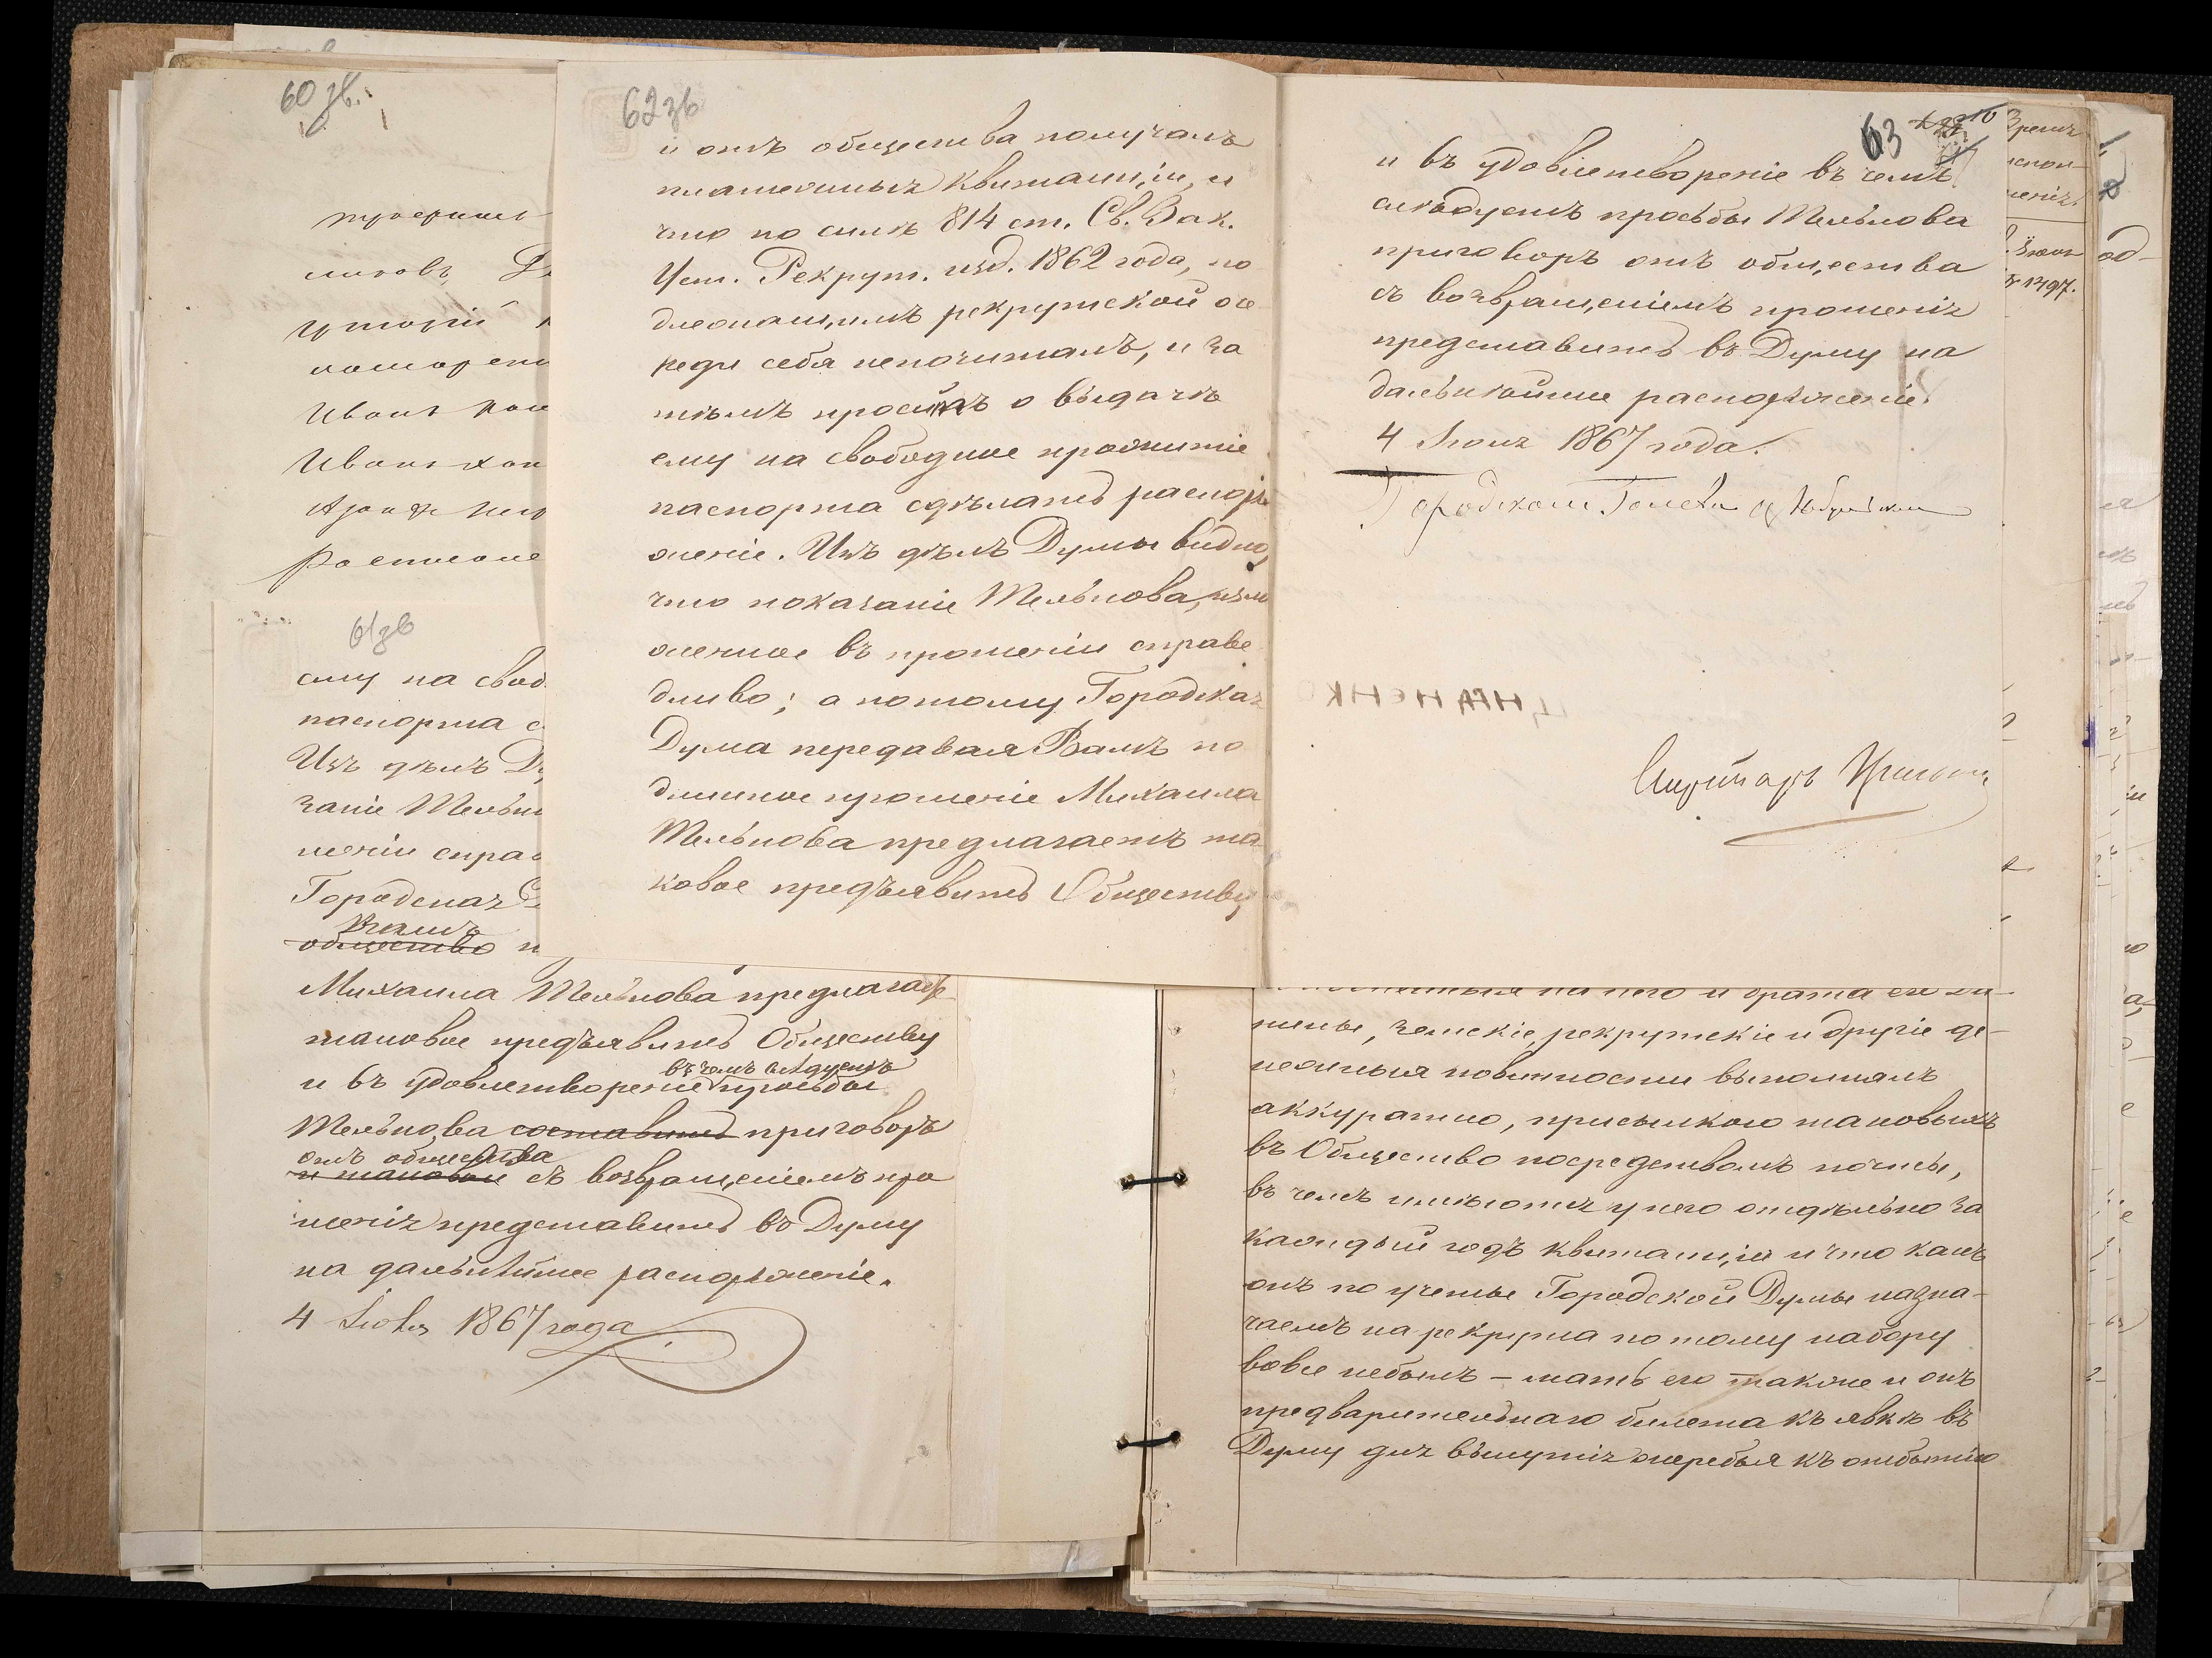 60 зв.
мировъ
Иванъ
Иванъ
62 зв
и отъ общества получалъ
платежныхъ квитанціи, и
что по силѣ 814 ст. Св. Зак.
Уст. Рекрут. изд. 1862 года, по
длежащимъ рекрутской оче
реди себя непочиталъ, и за
тѣмъ просилъ о выдачѣ
ему на свободное прожитіе
паспорта сдѣлать распоря
женіе. Изъ дѣлъ Думы видно,
что показаніе Мельнова, изло
женное въ прошеніи справе
дливо; а потому Городская
Дума передавая Вамъ по
длинное прошеніе Михаила
Мельнова предлагаетъ та
ковое предъявить Обществу
63
и въ удовлетвореніе въ чемъ
слѣдуетъ просьбы Мельнова
приговоръ отъ общества
съ возвращеніемъ прошенія
представить въ Думу на
дальнѣйшее распоряженіе.
4 Іюня 1867 года.
Городской Голова
Секретарь
61 зв
ему на свод
паспорта с
Изъ дѣлъ Д
заніе Мельн
шеніи справ
Городская
общество
Михаила Мельнова предлагаетъ
таковое предъявить Обществу
въ чемъ слѣдуетъ
и въ удовлетвореніе просьбы
Мельнова составить приговоръ
отъ общества
и таковой съ возвращеніемъ про
шенія представить въ Думу
на дальнѣйшее распоряженіе.
4 Іюня 1867 года
на него и брата его
земскіе, рекрутскіе и другіе де-
нежныя повинности выполнялъ
аккуратно, присылкою таковыхъ
въ Общество посредствомъ почты,
въ чемъ имѣются у него отдѣльно за
каждый годъ квитанціи и что какъ
онъ по учетье Городской Думы назна-
чаемъ на рекрута по тому набору
вовсе небылъ – мать его также и онъ
предварительнаго билета къ явкѣ въ
Думу для вынутія жеребья къ отбытію
№ 1397.